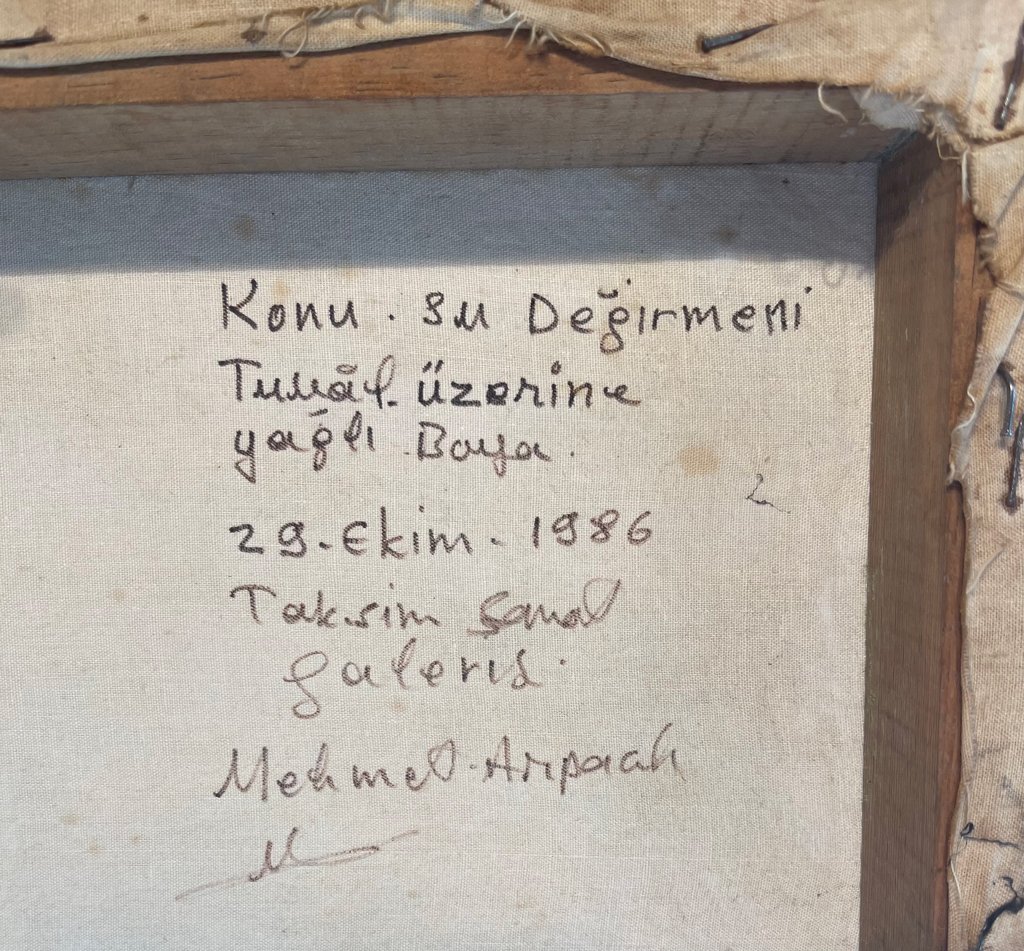 Konu . Su Değirmeni
Tuvâl üzerine
yağlı Boya.
29. Ekim. 1986
Taksim Sanat
galerisi.
Mehmet